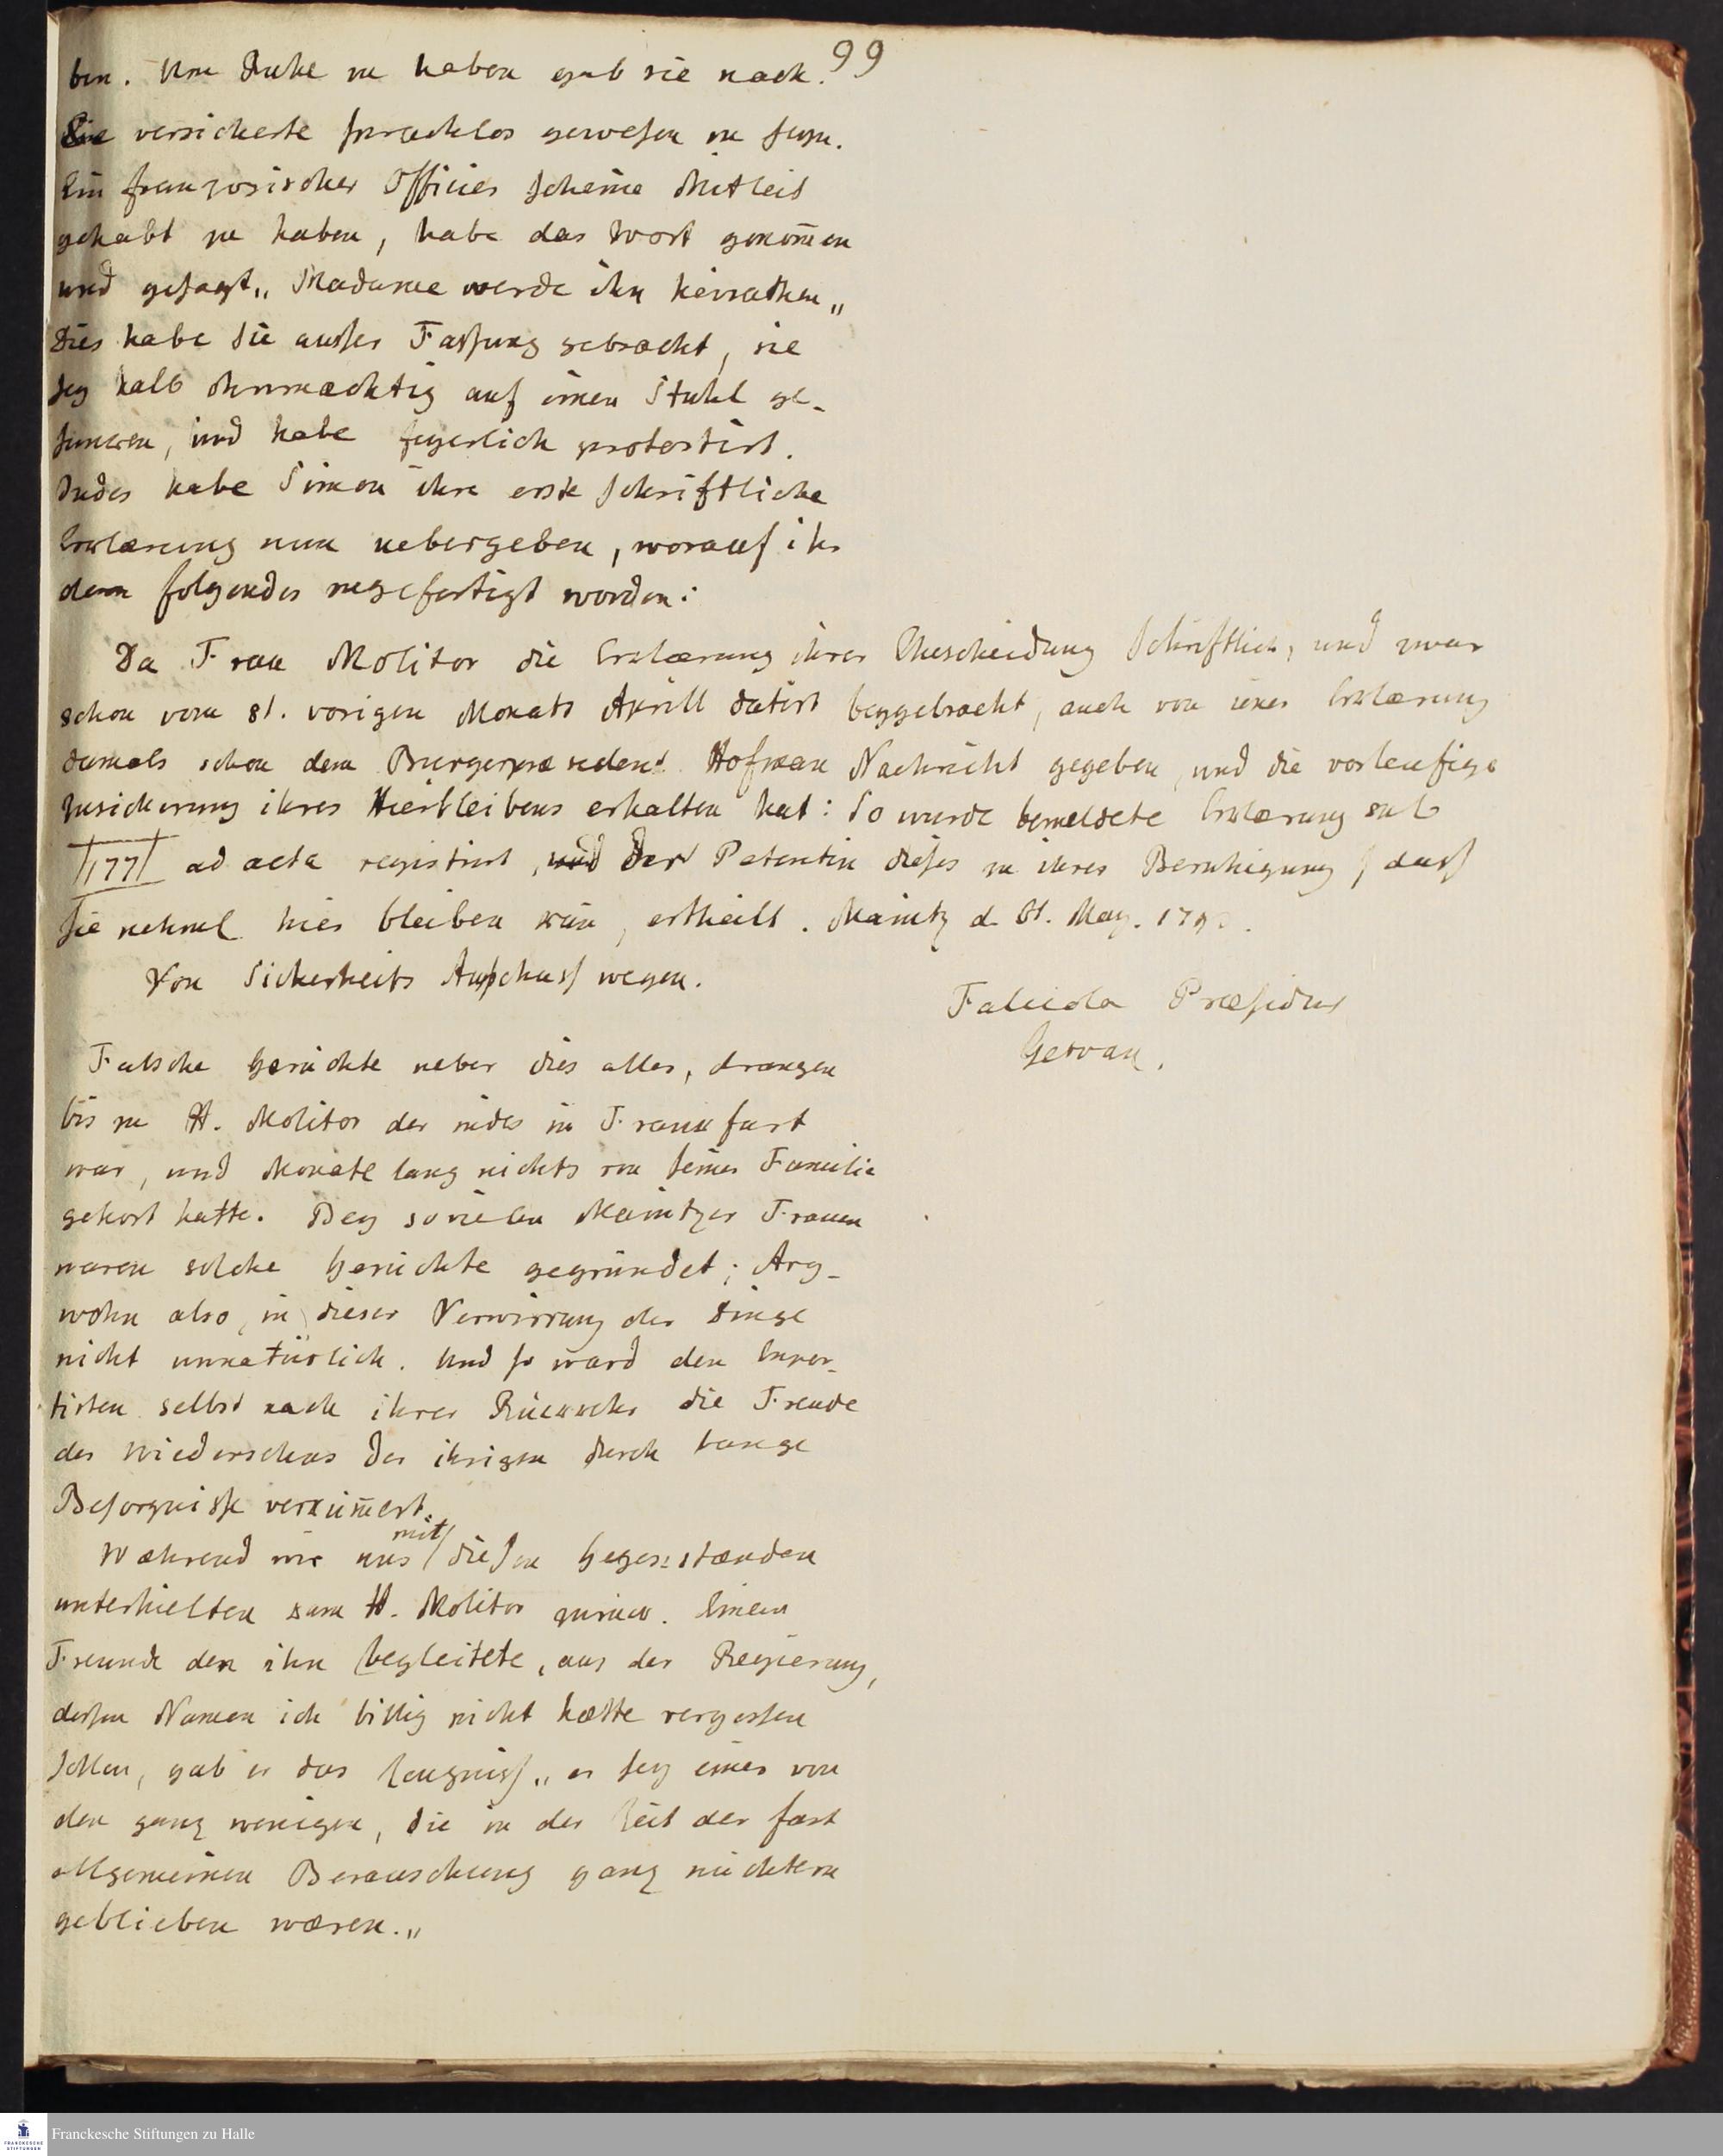 99
ben. Um Ruhe zu haben gab sie nach.
Sie versicherte sprachlos gewesen zu seyn.
Ein französischer Officier scheine Mitleid
gehabt zu haben, habe das Wort genom̄en
und gesagt „Madame werde ihn heirathen„
Dies habe sie ausser Fassung gebracht, sie
sey halb ohnmæchtig auf einen Stuhl ge-
sunken, und habe feyerlich protestirt.
Indes habe Simon ihre erste schriftliche
Erklærung nun uebergeben, worauf ihr
denn folgendes zugefertigt worden:
Da Frau Molitor die Erklærung ihrer Ehescheidung schriftlich, und zwar
schon vom 81. vorigen Monats Aprill datirt beygebracht, auch von jener Erklærung
damals schon dem Burgerpræsident Hofman Nachricht gegeben, und die vorleufige
Zusicherung ihres Hierbleibens erhalten hat: So wurde bemeldete Erklærung sub
177 ad acta registrirt, und der Petentin dieses zu ihrer Beruhigung, dass
sie hier bleiben kön̄e, ertheilt. Maintz d. 81. May.
Von Sicherheits Ausschuss wegen.
Falciola Præsident
Gervan.
Falsche Gerüchte ueber dies alles, drangen
bis zu H. Molitor der indes in Frankfurt
war, und Monate lang nichts von seiner Familie
gehört hatte. Bey so vielen Maintzer Frauen
waren solche Gerüchte gegründet; Arg-
wohn also, in dieser Verwirrung der Dinge
nicht unnatürlich. Und so ward den Expor-
tirten selbst nach ihrer Rückkehr die Freude
des Wiedersehns der ihrigen durch bange
Besorgnisse verküm̄ert.
Wæhrend wir uns mit diesen Gegenstænden
unterhielten kam H. Molitor zurück. Einem
Freunde der ihn begleitete, aus der Regierung,
dessen Namen ich billig nicht hætte vergessen
sollen, gab er das Zeugniss „er sey einer von
den ganz wenigen, die in der Zeit der fast
allgemeinen Berauschung ganz nüchtern
geblieben wæren.„
Franckesche Stiftungen zu Halle
FRANCKESCHE
STIFTUNGEN